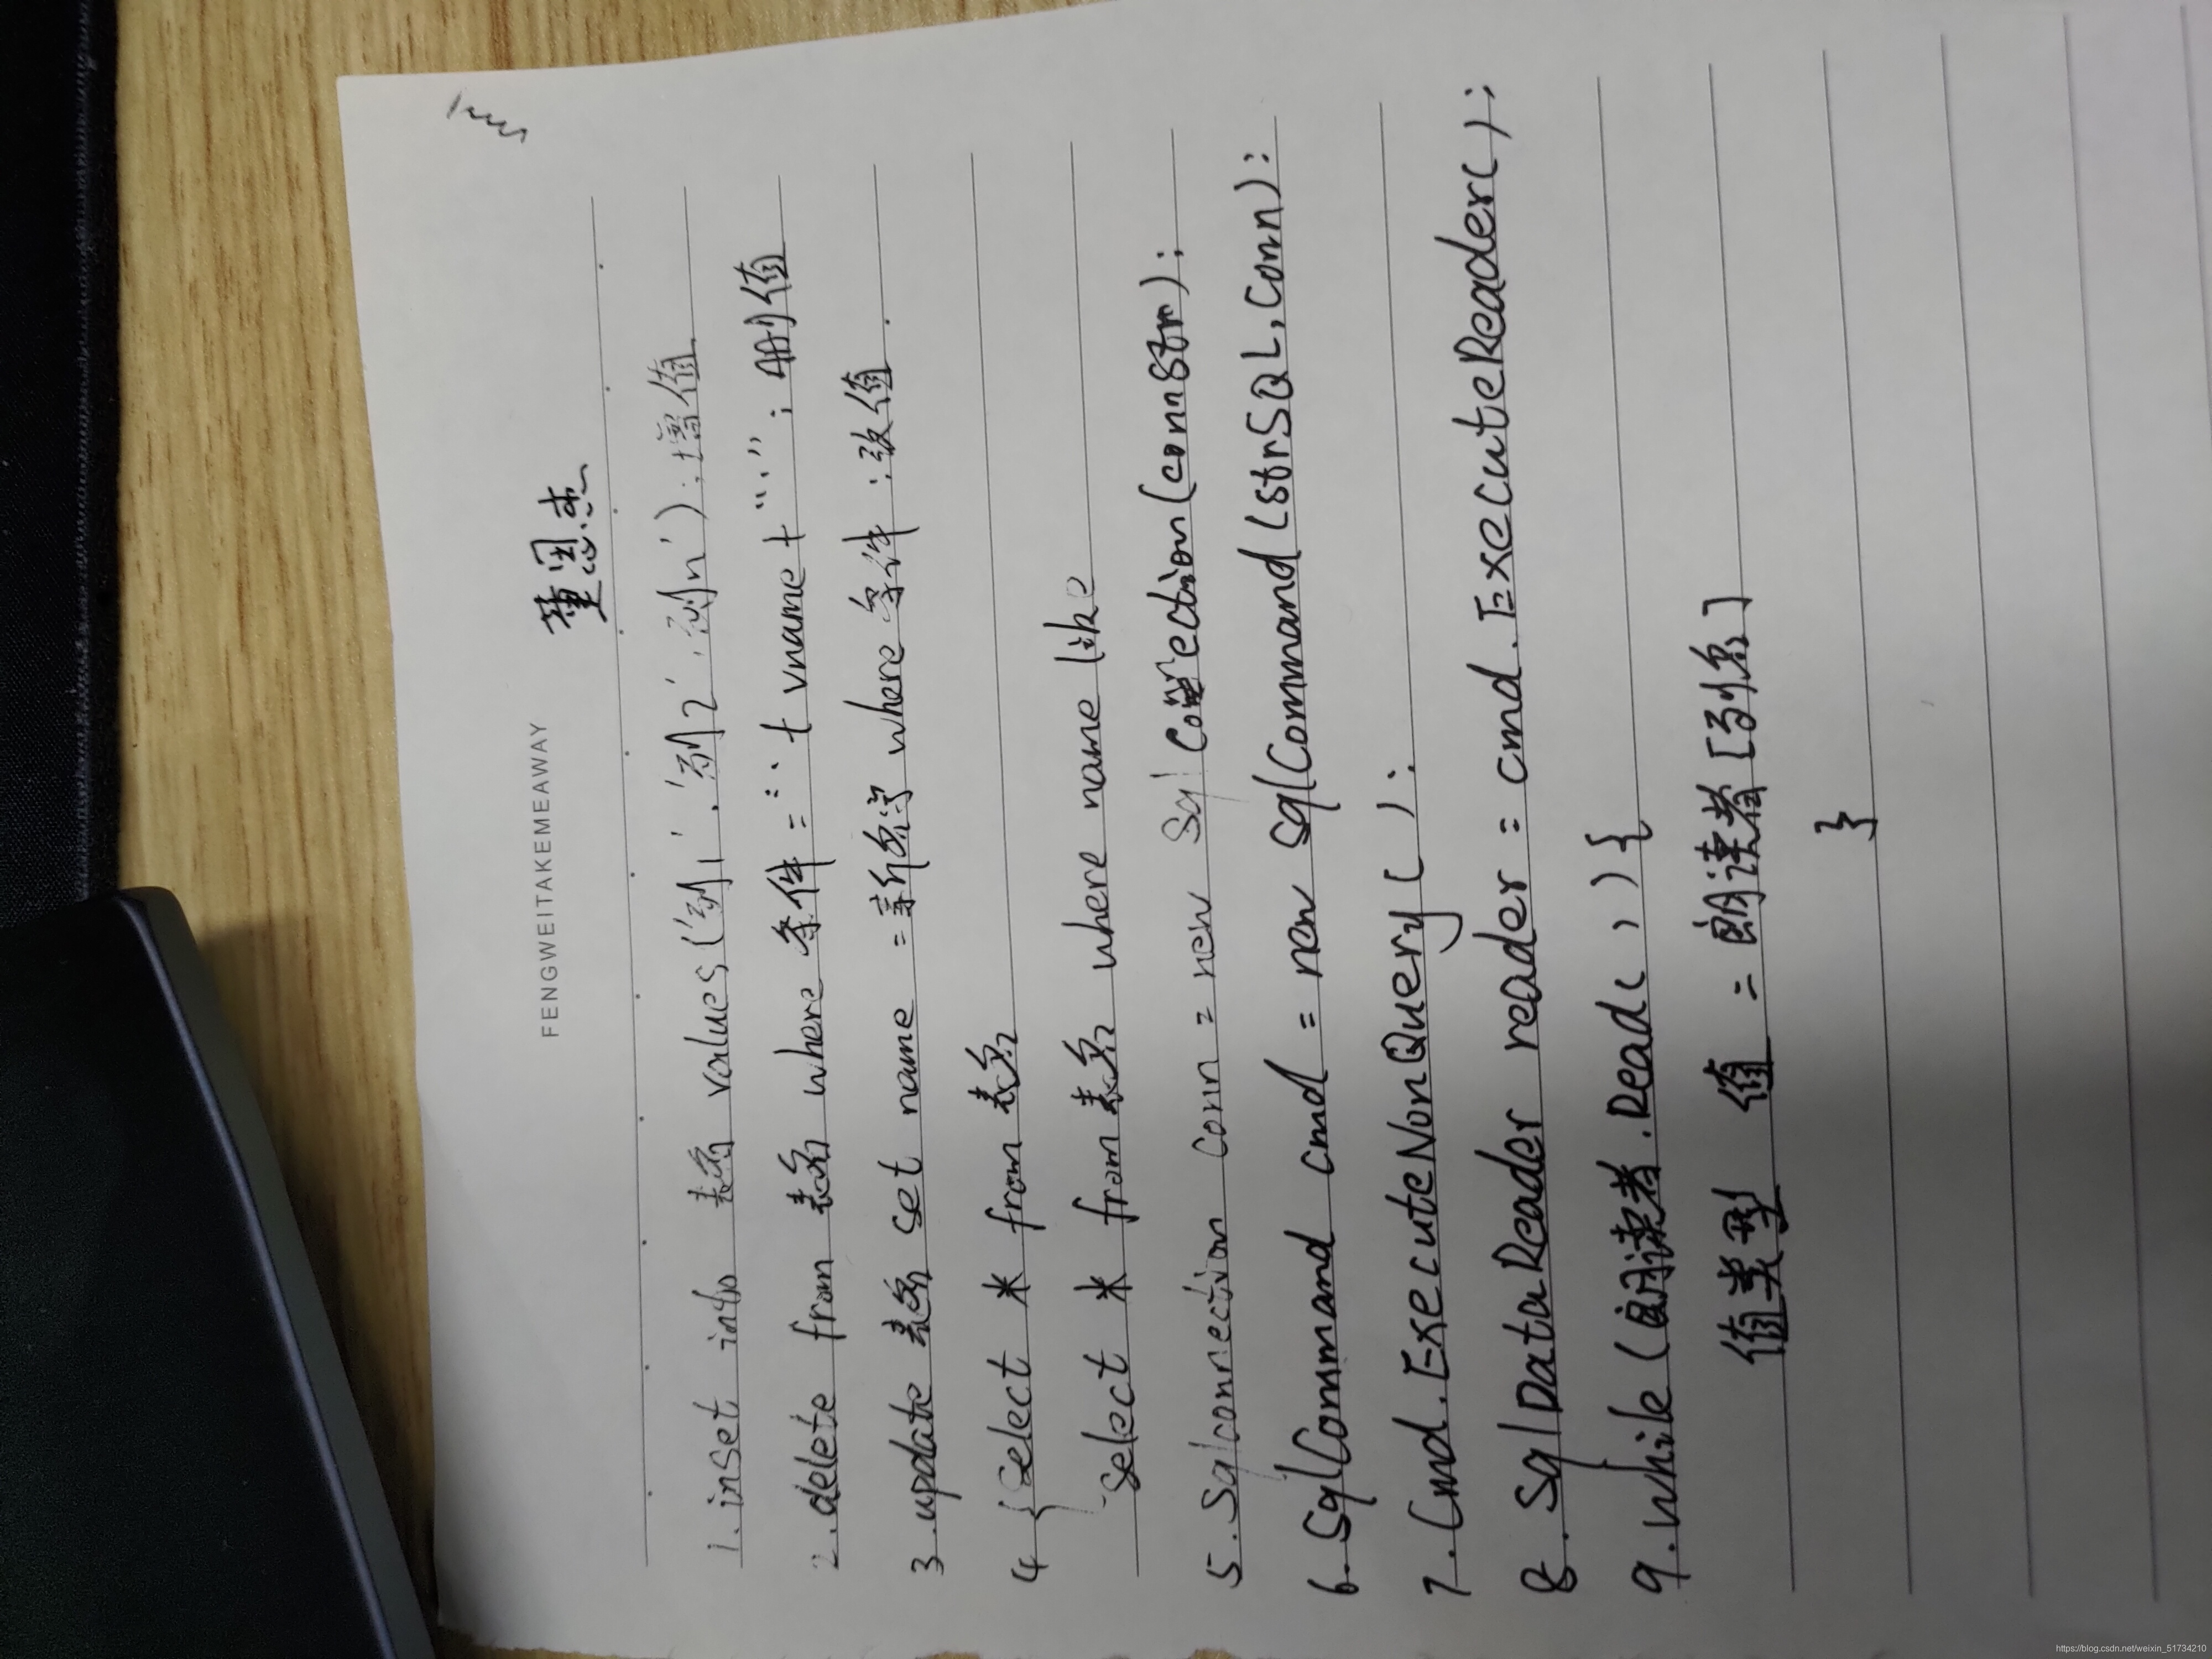 FENGWEITAKEMEAWAY 董恩杰
1.inset into 表名 values('列1'.'列2'.'列n'):增值
2.delete from 表名 where 条件="'+ vname+"'";删值
3.update 表名 set name = 新名字 where 条件:改值.
4{Select * from 表名
Select * from 表名 where name like
5.Sqlconnection Conn = new Sql Connection(connStr);
6.SqlCommand cmd = new SqlCommand(strSQL,Conn):
7.Cmd.ExecuteNonQuery( ):
8.SqlDataReader reader = cmd.ExecuteReader():
9.while(朗读者.Read()){
值类型 值 = 朗读者[列名]
}
https://blog.csdn.net/weixin_51734210